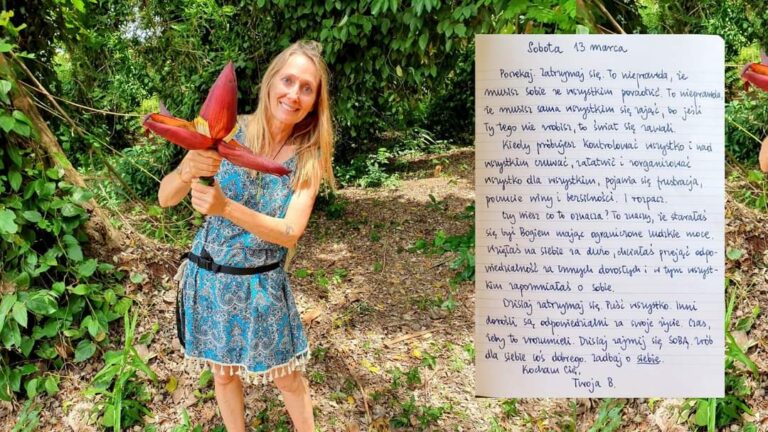 Sobota 13 marca
Poczekaj. Zatrzymaj się. To nieprawda, że
musisz sobie ze wszystkim poradzić. To nieprawda,
że musisz sama wszystkim się zająć, bo jeśli
Ty tego nie zrobisz, to świat się zawali.
Kiedy próbujesz kontrolować wszystko i nad
wszystkim czuwać, załatwić i zorganizować
wszystko dla wszystkim, pojawia się frustracja,
poczucie winy i bezsilności. I rozpacz.
Czy wiesz co to oznacza? To znaczy, że starałaś
się być Bogiem mając ograniczone ludzkie moce.
Wzięłaś na siebie za dużo, chciałaś przejąć odpo-
wiedzialność za innych dorosłych i w tym wszyst-
kim zapomniałaś o sobie.
Dzisiaj zatrzymaj się. Puść wszystko. Inni
dorośli są odpowiedzialni za swoje życie. Czas,
żeby to zrozumieli. Dzisiaj zajmij się SOBĄ, zrób
dla siebie coś dobrego. Zadbaj o siebie.
Kocham Cię,
Twoja B.